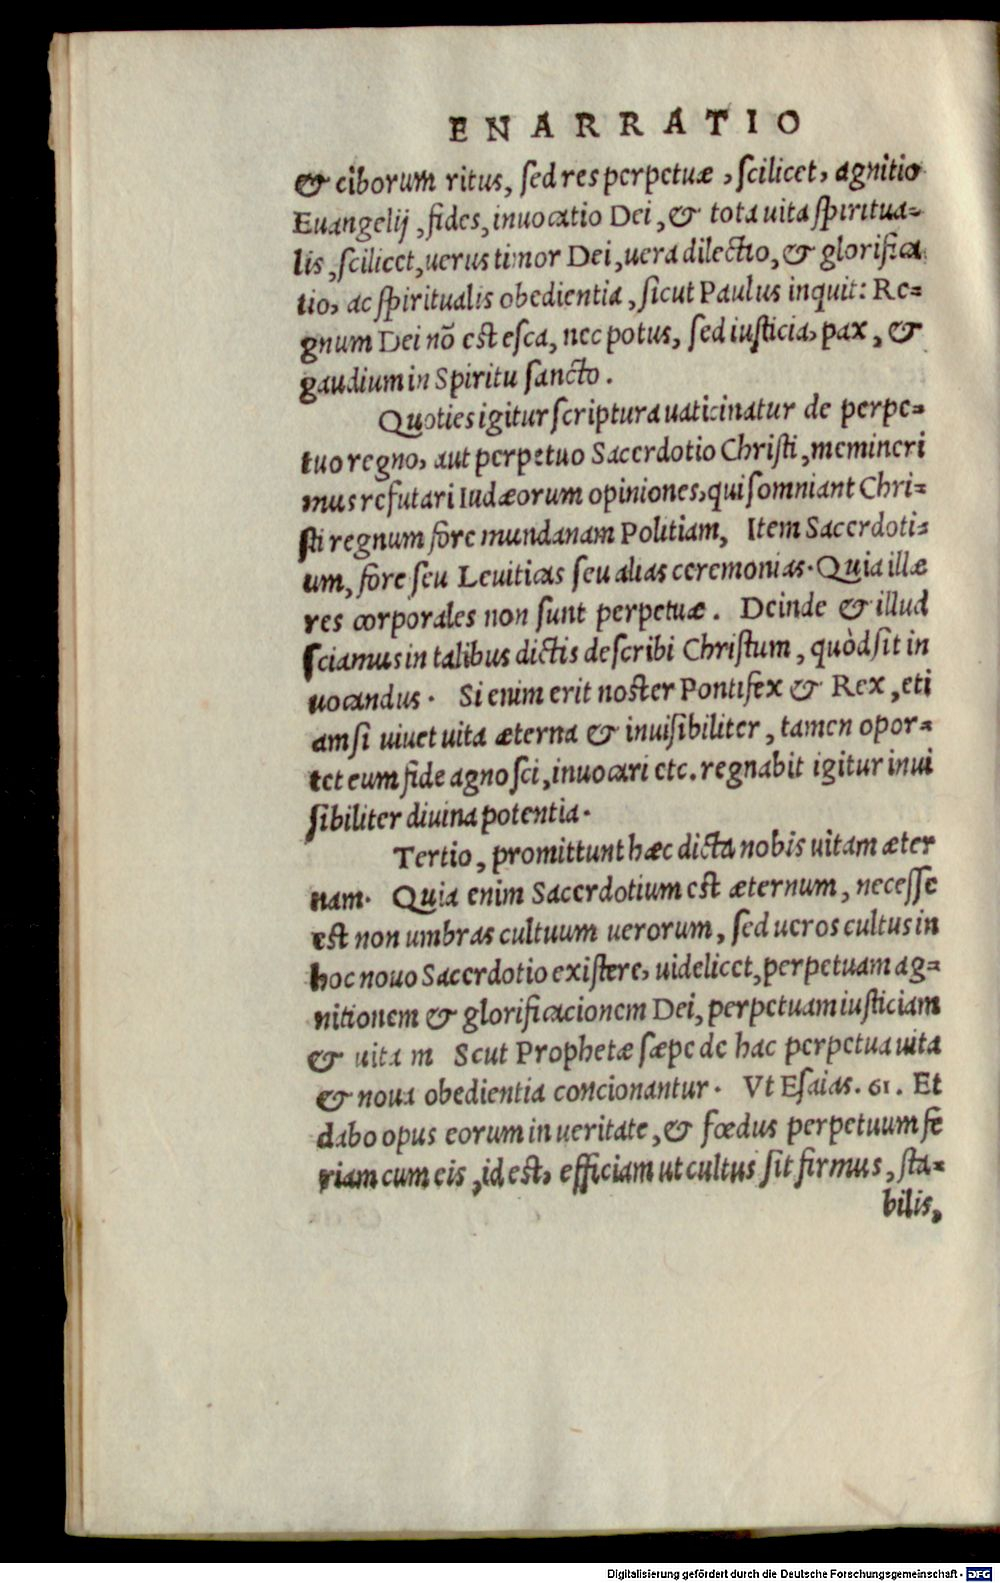 ENARRATIO
& ciborum ritus, ſed res perpetuæ, ſcilicet, agnitio
Euangelij, fides, inuocatio Dei, & tota uita ſpiritua-
lis, ſcilicet, uerus timor Dei, uera dilectio, & glorifica
tio, ac ſpiritualis obedientia, ſicut Paulus inquit: Re-
gnum Dei nõ est eſca, nec potus, ſed iuſticia, pax, &
gaudium in Spiritu ſancto.
Quoties igitur ſcriptura uaticinatur de perpe-
tuo regno, aut perpetuo Sacerdotio Chriſti, memineri
mus refutari Iudæorum opiniones, qui ſomniant Chri-
ſti regnum fore mundanam Politiam, Item Sacerdoti-
um, fore ſeu Leuiticas ſeu alias ceremonias. Quia illæ
res corporales non ſunt perpetuæ. Deinde & illud
ſciamus in talibus dictis deſcribi Chriſtum, quòd ſit in
uocandus. Si enim erit noſter Pontifex & Rex, eti
amſi uiuet uita æterna & inuiſibiliter, tamen opor-
tet eum fide agnoſci, inuocari etc. regnabit igitur inui
ſibiliter diuina potentia.
Tertio, promittunt hæc dicta nobis uitam æter
nam. Quia enim Sacerdotium est æternum, neceſſe
est non umbras cultuum uerorum, ſed ueros cultus in
hoc nouo Sacerdotio exiſtere, uidelicet, perpetuam ag-
nitionem & glorificacionem Dei, perpetuam iuſticiam
& uita m Scut Prophetæ ſæpe de hac perpetua uita
& noua obedientia concionantur. Vt Eſaias. 61. Et
dabo opus eorum in ueritate, & fœdus perpetuum fe
riam cum eis, id est, efficiam ut cultus ſit firmus, ſta-
bilis,
Digitalisierung gefördert durch die Deutsche Forschungsgemeinschaft - DFG